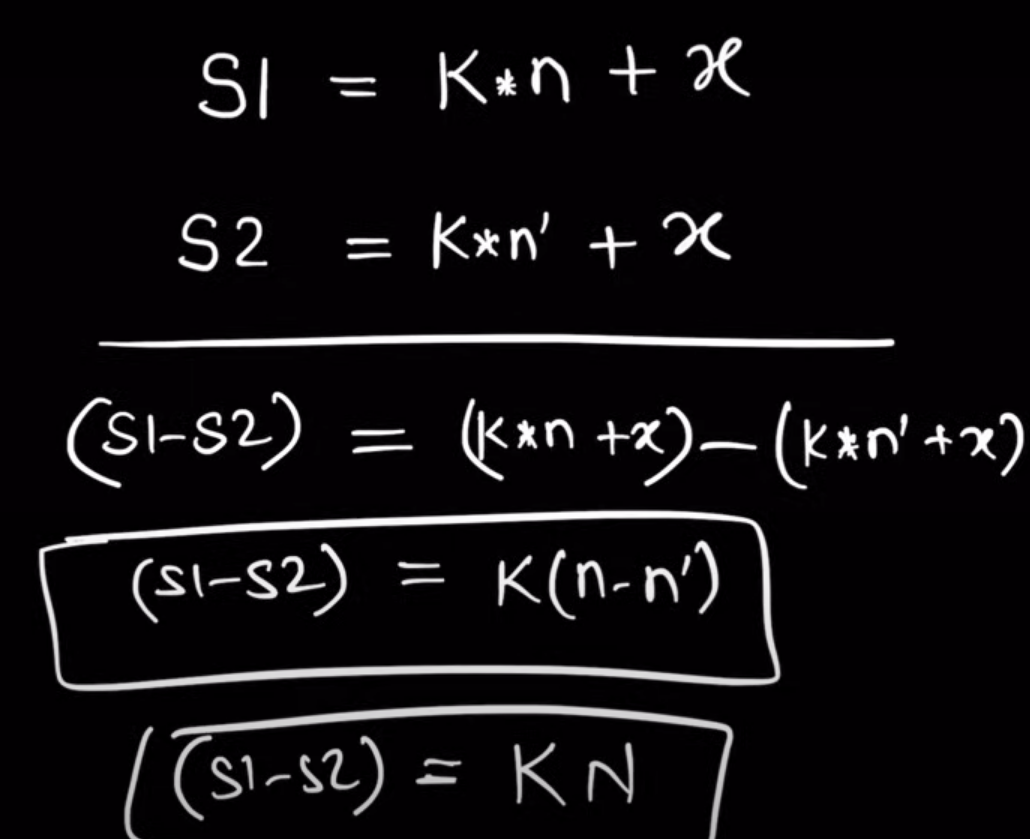 S1 = K*n + x
S2 = K*n' + x
(S1-S2) = (K*n +x)-(K*n' +x)
(S1-S2) = K(n-n')
(S1-S2) = KN